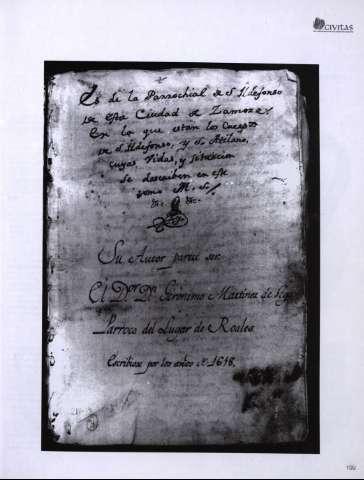 CIVITAS
Es de la Parrochial de S. Ildefonso
de esta Ciudad de Zamora,
En la que están los Cuerpos
de S. Ildefonso, y S. Atilano,
cuyas Vidas, y
se describen en este
tomo M. S.
Su Autor parece ser
El Dor. Dn. Geronimo Martinez de Vega
Parroco del Lugar de Roales
Escribiose por los años de 1618.
199